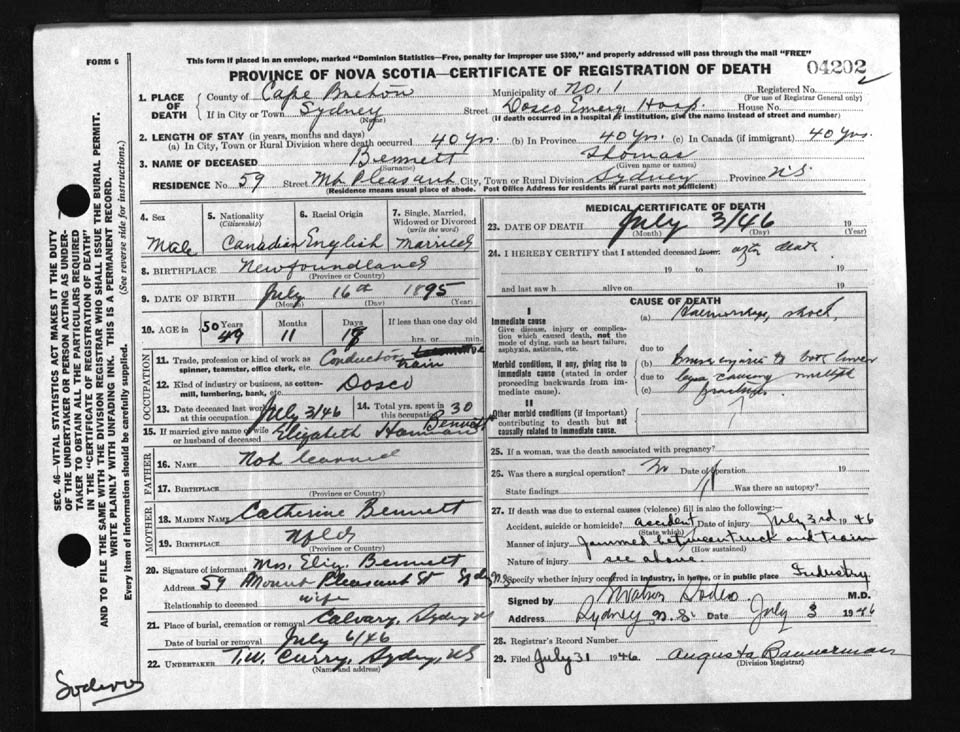 FORM 6
This form if placed in an envelope, marked "Dominion Statistics—Free, penalty for improper use $300," and properly addressed will pass through the mail "FREE"
PROVINCE OF NOVA SCOTIA—CERTIFICATE OF REGISTRATION OF DEATH
04202
1. PLACE OF DEATH
County of Cape Breton Municipality of No. 1 Registered No.
(For use of Registrar General only)
If in City or Town Sydney Street Dosco Emerg. Hosp. House No.
(Name) (If death occurred in a hospital or institution, give the name instead of street and number)
2. LENGTH OF STAY (in years, months and days)
(a) In City, Town or Rural Division where death occurred 40 yrs. (b) In Province 40 yrs. (c) In Canada (if immigrant) 40 yrs.
3. NAME OF DECEASED Bennett Thomas
(Surname) (Given name or names)
RESIDENCE No. 59 Street Mt. Pleasant City, Town or Rural Division Sydney Province N.S.
(Residence means usual place of abode. Post Office Address for residents in rural parts not sufficient)
4. Sex Male
5. Nationality (Citizenship) Canadian
6. Racial Origin English
7. Single, Married, Widowed or Divorced (write the word) Married
8. BIRTHPLACE Newfoundland
(Province or Country)
9. DATE OF BIRTH July 16th 1895
(Month) (Day) (Year)
10. AGE in 50 Years 49 Months 11 Days If less than one day old hrs. or min.
11. Trade, profession or kind of work as spinner, teamster, office clerk, etc. Conductor train
12. Kind of industry or business, as cotton-mill, lumbering, bank, etc. Dosco
13. Date deceased last worked at this occupation July 3/46
14. Total yrs. spent in this occupation 30
15. If married give name of wife or husband of deceased Elizabeth Bennett
OCCUPATION
FATHER
16. NAME Not learned
17. BIRTHPLACE
(Province or Country)
MOTHER
18. MAIDEN NAME Catherine Bennett
19. BIRTHPLACE Nfld
(Province or Country)
20. Signature of informant Mrs. Eliz. Bennett
Address 59 Mount Pleasant St Sydney N.S.
Relationship to deceased wife
21. Place of burial, cremation or removal Calvary, Sydney NS
Date of burial or removal July 6/46
22. UNDERTAKER T.W. Curry, Sydney, NS
(Name and address)
MEDICAL CERTIFICATE OF DEATH
23. DATE OF DEATH July 3/46 19
(Month) (Day) (Year)
24. I HEREBY CERTIFY that I attended deceased from: after death
19 to 19
and last saw h alive on 19
CAUSE OF DEATH
I
Immediate cause
Give disease, injury or complication which caused death, not the mode of dying, such as heart failure, asphyxia, asthenia, etc.
(a) Haemorrhage, shock,
due to
Morbid conditions, if any, giving rise to immediate cause (stated in order proceeding backwards from immediate cause).
(b) to both lower
due to legs causing multiple
(c) fractures
II
Other morbid conditions (if important) contributing to death but not causally related to immediate cause.
25. If a woman, was the death associated with pregnancy?
26. Was there a surgical operation? No Date of operation 19
State findings Was there an autopsy?
27. If death was due to external causes (violence) fill in also the following:—
Accident, suicide or homicide? accident Date of injury July 3rd 1946
(State which)
Manner of injury Jammed between truck and train
(How sustained)
Nature of injury see above.
Specify whether injury occurred in industry, in home, or in public place Industry
Signed by M.D.
Address Sydney N.S. Date July 3 1946
28. Registrar's Record Number
29. Filed July 31 1946. Augusta Bannerman
(Division Registrar)
SEC. 46—VITAL STATISTICS ACT MAKES IT THE DUTY OF THE UNDERTAKER OR PERSON ACTING AS UNDERTAKER TO OBTAIN ALL THE PARTICULARS REQUIRED IN THE "CERTIFICATE OF REGISTRATION OF DEATH" AND TO FILE THE SAME WITH THE DIVISION REGISTRAR WHO SHALL ISSUE THE BURIAL PERMIT.
WRITE PLAINLY WITH UNFADING INK. THIS IS A PERMANENT RECORD.
Every item of information should be carefully supplied. (See reverse side for instructions.)